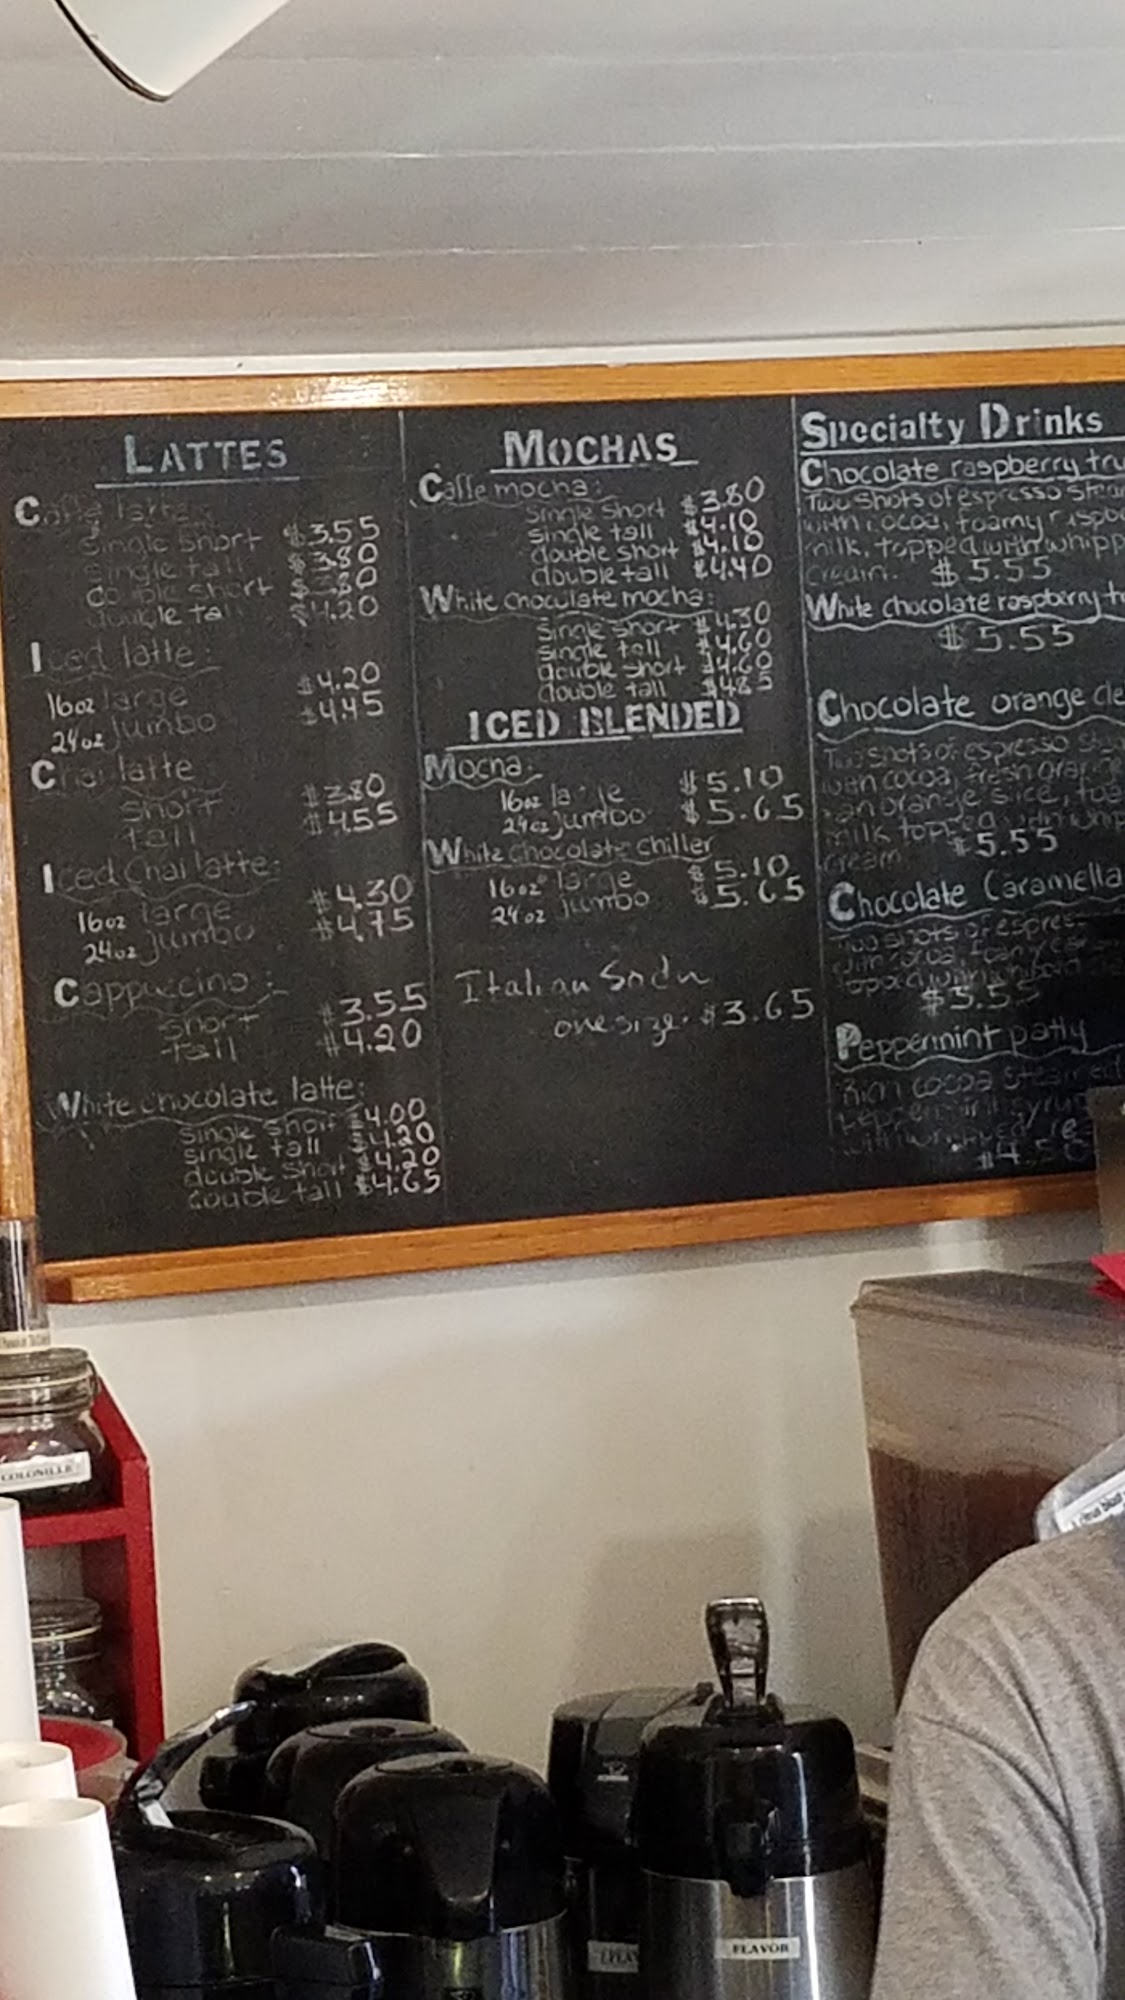 LATTES
Caffe latte:
single short $3.55
single tall $3.80
double short $3.80
double tall $4.20
Iced latte:
16oz large $4.20
24oz Jumbo $4.45
Chai latte
short $3.80
tall $4.55
Iced Chai latte:
16oz large $4.30
24oz Jumbo $4.75
Cappuccino:
short $3.55
tall $4.20
White chocolate latte:
single short $4.00
single tall $4.20
double short $4.20
double tall $4.65
MOCHAS
Caffe mocha:
single short $3.80
single tall $4.10
double short $4.10
double tall $4.40
White chocolate mocha:
single short $4.30
single tall $4.60
double short $4.60
double tall $4.85
ICED BLENDED
Mocha:
16oz large $5.10
24oz Jumbo $5.65
White chocolate chiller
16oz large $5.10
24oz Jumbo $5.65
Italian Soda
one size $3.65
Specialty Drinks
Chocolate raspberry tru
Two shots of espresso stea
with cocoa, foamy raspb
milk, topped with whipp
cream. $5.55
White chocolate raspberry t
$5.55
Chocolate orange
Two shots of espresso
with cocoa, fresh orange
an orange slice,
milk topped with whip
cream $5.55
Chocolate Caramella
Two shots of espres
with cocoa,
$5.55
Peppermint patty
Rich cocoa steamed
peppermint syrup
$4.50
COLONILLE
FLAVOR